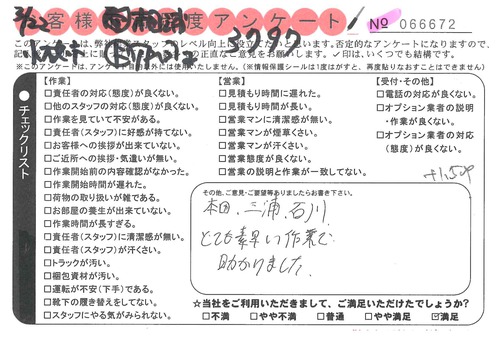 3/22
お客様満足度アンケート
No 066672
3797
ご記入は、いくつでも結構です。
※このアンケートは、作業員評価以外には使用いたしません。(※情報保護シールは1度はがすと、再度貼りなおすことはできません)
チェックリスト
【作業】
□責任者の対応(態度)が良くない。
□他のスタッフの対応(態度)が良くない。
□作業を見ていて不安がある。
□責任者(スタッフ)に好感が持てない。
□お客様への挨拶が出来ていない。
□ご近所への挨拶・気遣いが無い。
□作業開始前の内容確認がなかった。
□作業開始時間が遅れた。
□荷物の取り扱いが雑である。
□お部屋の養生が出来ていない。
□作業時間が長すぎる。
□責任者(スタッフ)に清潔感が無い。
□責任者(スタッフ)が汗くさい。
□トラックが汚い。
□梱包資材が汚い。
□運転が不安(下手)である。
□靴下の履き替えをしてない。
□スタッフにやる気がみられない。
【営業】
□見積もり時間に遅れた。
□見積もり時間が長い。
□営業マンに清潔感が無い。
□営業マンが煙草くさい。
□営業マンが汗くさい。
□営業態度が良くない。
□営業の説明と作業が一致してない。
【受付・その他】
□電話の対応が良くない。
□オプション業者の説明
・作業が良くない。
□オプション業者の対応
(態度)が良くない。
その他、ご意見・ご要望等ありましたらお書き下さい。
本田、三浦、石川
とても素早い作業で
助かりました
☆当社をご利用いただきまして、ご満足いただけたでしょうか?
□不満 □やや不満 □普通 □やや満足 ☑満足